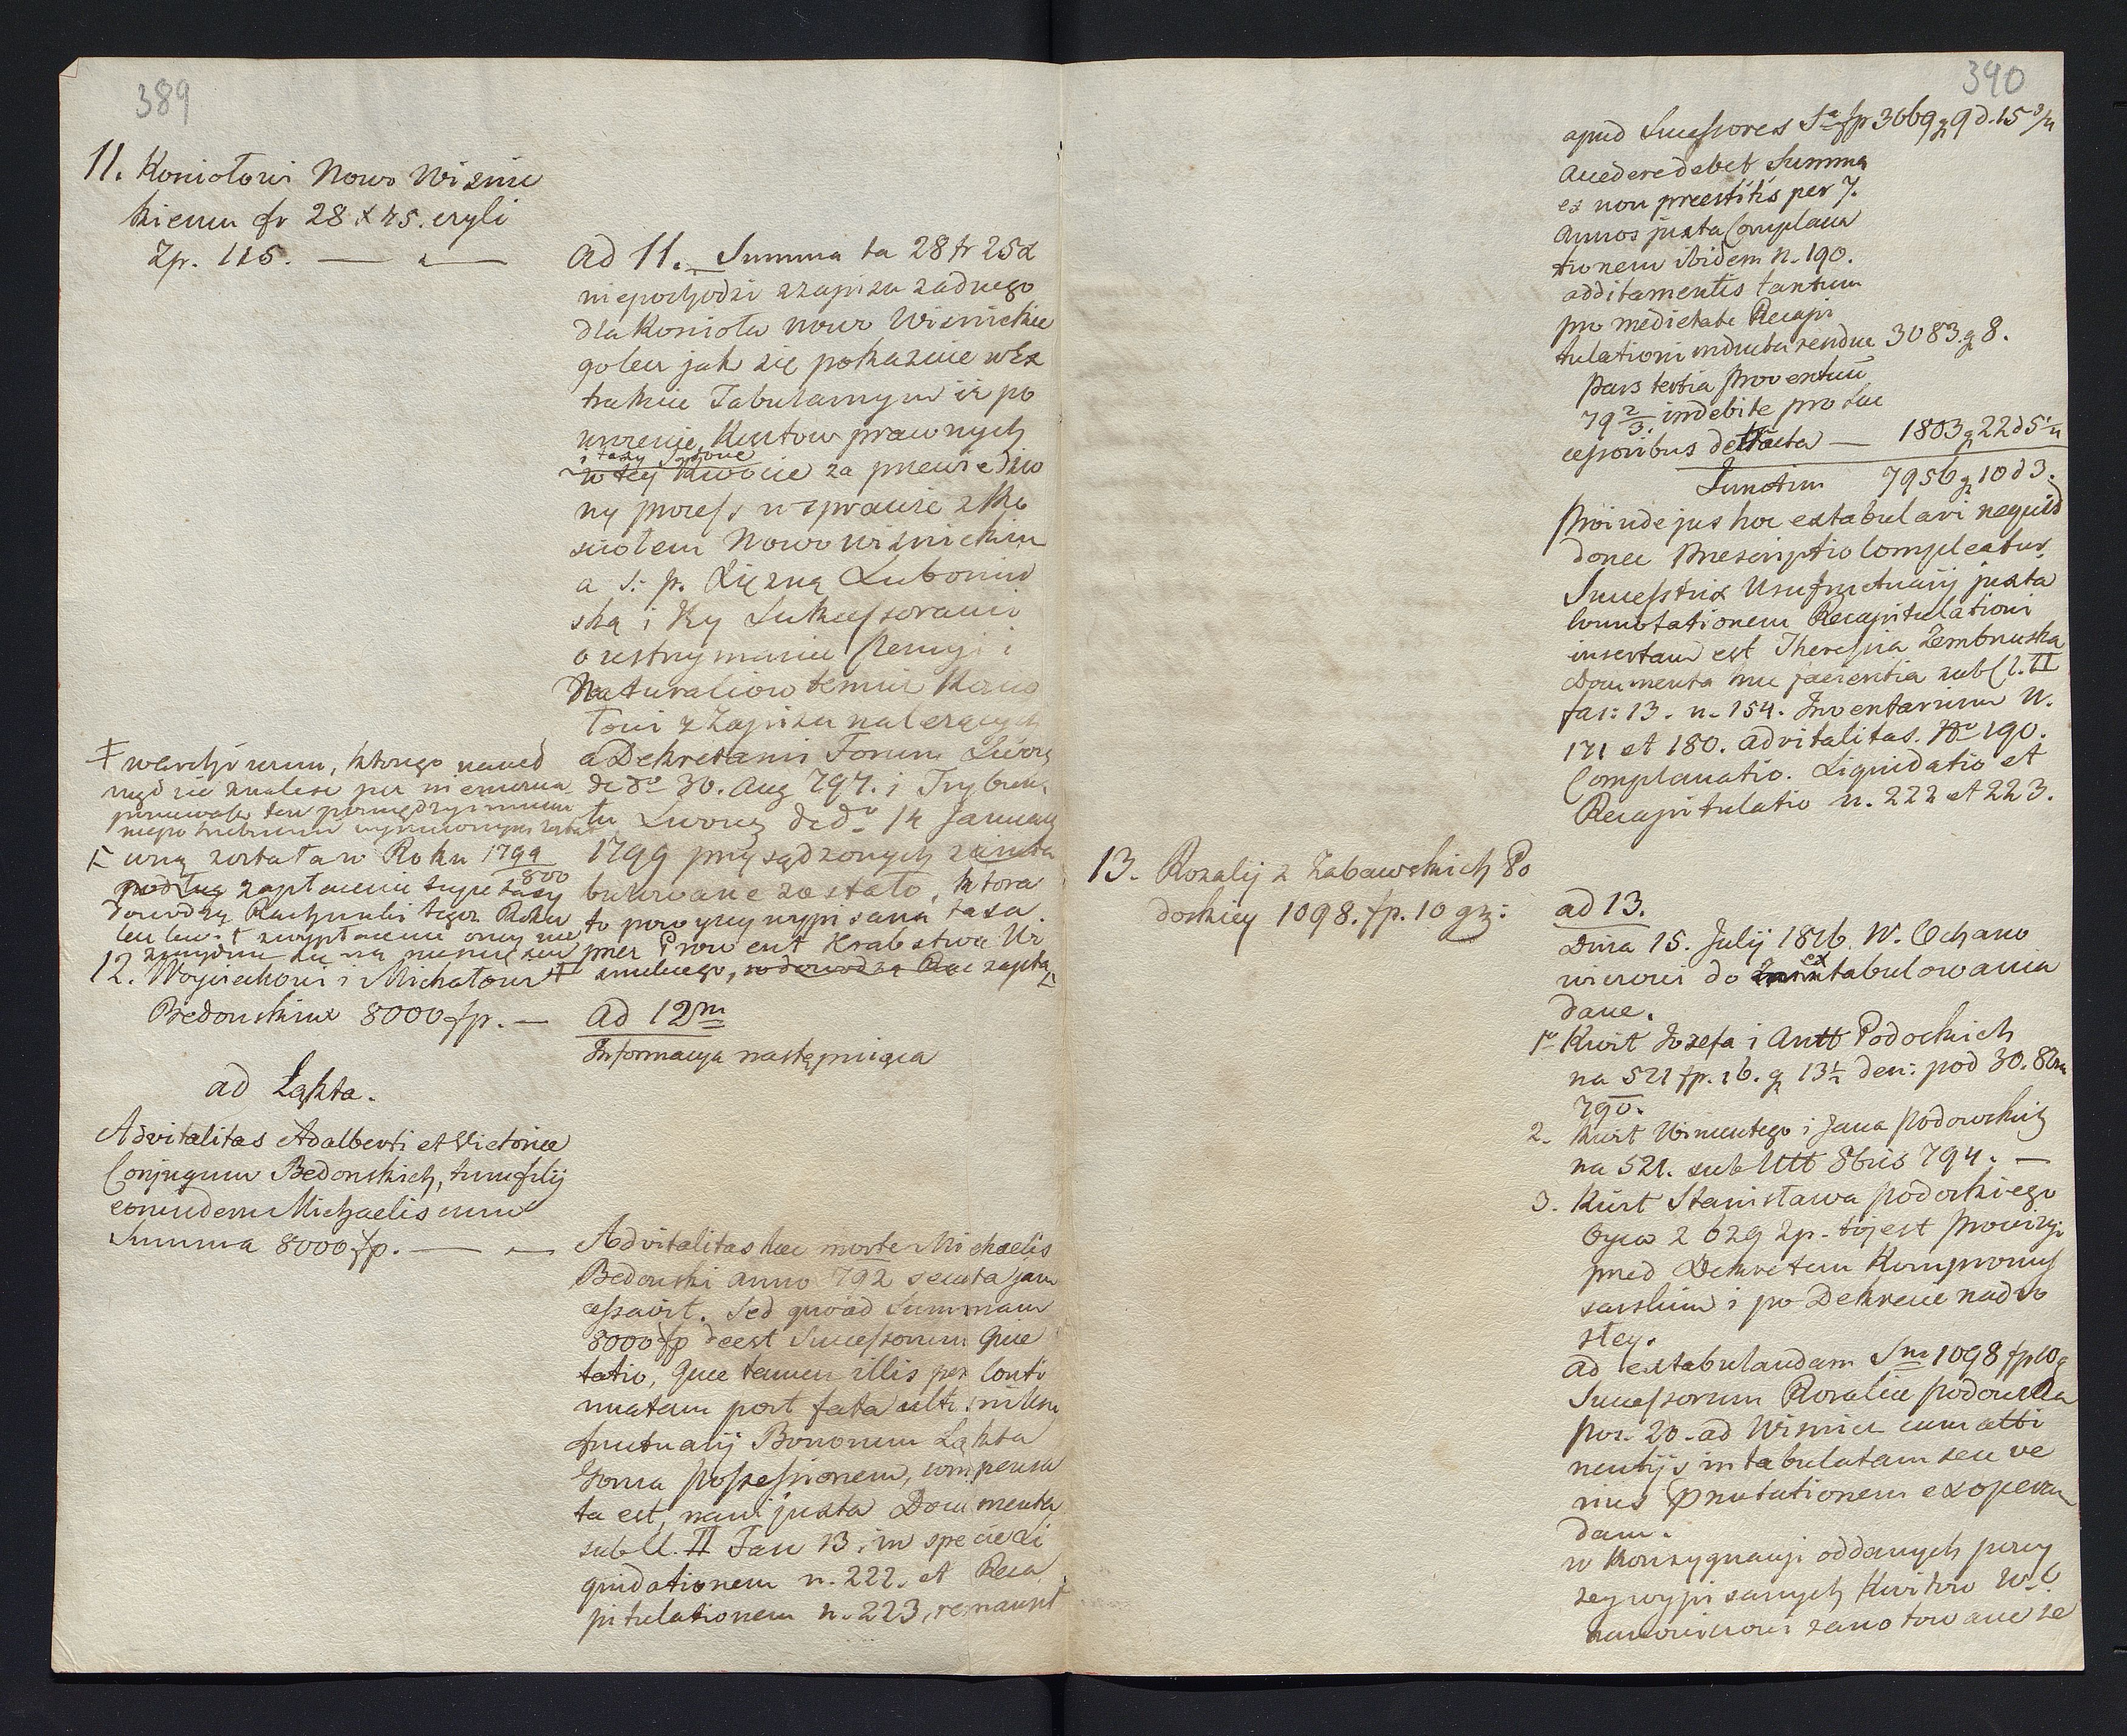 389
11. Koniołowi Nowo Wiznic
kiemu fr 28 x 45. czyli
Zp. 115. — " —
ad 11. Summa ta 28 fr 25x
niepochodzi z zapisu zadnego
dla Koniola nowo Wisnickie
go leu jak się pokazuie w Ex
trakcie Tabularnym iz po
i taxy Sądowe
w tey kwocie za przewiedzio
ny process w sprawie z Ko
sciołem Nowo wisnickim
a S. p. Xiężną Lubomir
ską i Jey Sukcessorami
o restrymanie Pensyi i
Naturaliow temuz Koscio
łowi z Zapisu należących
a Dekretami Forum Lwow
de do 30. Aug 797. i Trybuna
łu Lwow de do 14 January
1799 przysądzonych zainta
bulowane zostało, ktora
to powyzey wypisana taxa
przez Prowent Hrabstwa Wi
snickiego, zapła
ǂ w archivum, ktorego
cona została w Roku 1799/800
podług zapłacenie teyże taxy
dowodzą Rachunki tegoz Roku
12. Woyciechowi i Michałowi
Biedonskim 8000 fp. —
Ad 12m
Informacya następuiąca
ad Łąkta.
Advitalitas Adalberti et Victoriae
Conjugum Bedonskich, tum filij
eorundem Michaelis cum
Summa 8000 fp. — " —
Advitalitas haec morte Michaelis
Bedonski anno 792 secuta jam
cessavit. Sed quoad Summam
8000 fp deest Successorum Quie
tatio, Quae tamen illis per Conti
nuatam post fata ultimi Usu
fructuarij Bonorum Łąkta
Gorna possessionem, compensa
ta est, nam juxta Documenta
sub Cl. II Fasc 13. in specie Li
quidationem n. 222. et Reca
pitulationem n. 223, remanent
390
apud Successores Sa fp 3669 g 9 d. 15 3/4
accedere debet Summa
ex non praestitis per 7.
Annos juxta Complana
tionem ibidem n. 190.
additamentis tantum
pro medietate Recapi
tulationi inducta rendue 3083. g 8.
Pars tertia Proventuū
79 2/3. indebite pro Suc
cessoribus detracta — 1803 g 22 d 5 1/4
Junctim 7956 g 10 d 3.
Proinde jus hoc extabulari nequid
donec Praescriptio Compleatur.
Successtrix Usufructuarij juxta
Connotationem Recapitulationi
insertam est Theressia Zembruska
Documenta huc facientia sub Cl. II
fas: 13. n. 154. Inventarium N.
171 et 180. advitalitas. No 190.
Complanatio. Liquidatio et
Recapitulatio n. 222 et 223.
13. Rozalij z Zabawskich Po
doskiey 1098. fp. 10 gr:
ad 13.
Dnia 15. Julij 1816. W. Ochano
wiczowi do extabulowania
dane.
1o Kwit Jozefa i Antt Podoskich
na 521 fp. 16. g 13 1/2 den: pod 30. 8bra
790.
2. Kwit Wincentego i Jana Podowskich
na 521. sub Ult 8bris 794. —
3. Kwit Stanisława Podoskiego
Oyca z 629 zp. tojest Prowizyi
przed Dekretem Kompromis
sarskim i po Dekrecie nadro
stey.
ad extabulandam Sm 1098 fp 10 g
Successorum Rosaliae Podowska
Pos. 20. ad Wisnicz cum atti
nentijs intabulatam seu ve
rius Pnotationem exoperan
dam.
w Konsygnacyi oddanych powy
zey wypisanych Kwitow W. O
chanowiczowi zanotowane ze